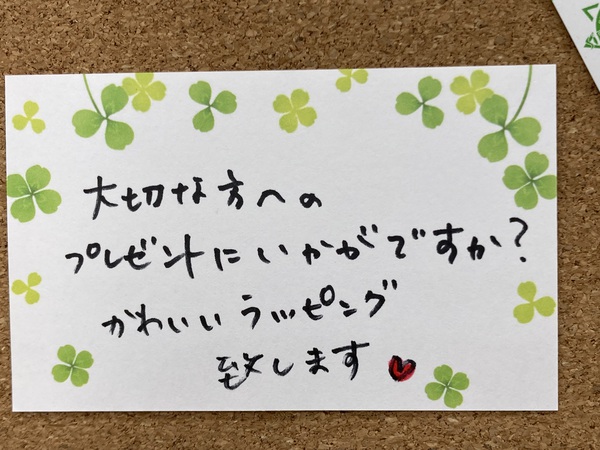 大切な方への
プレゼントにいかがですか?
かわいいラッピング
致します